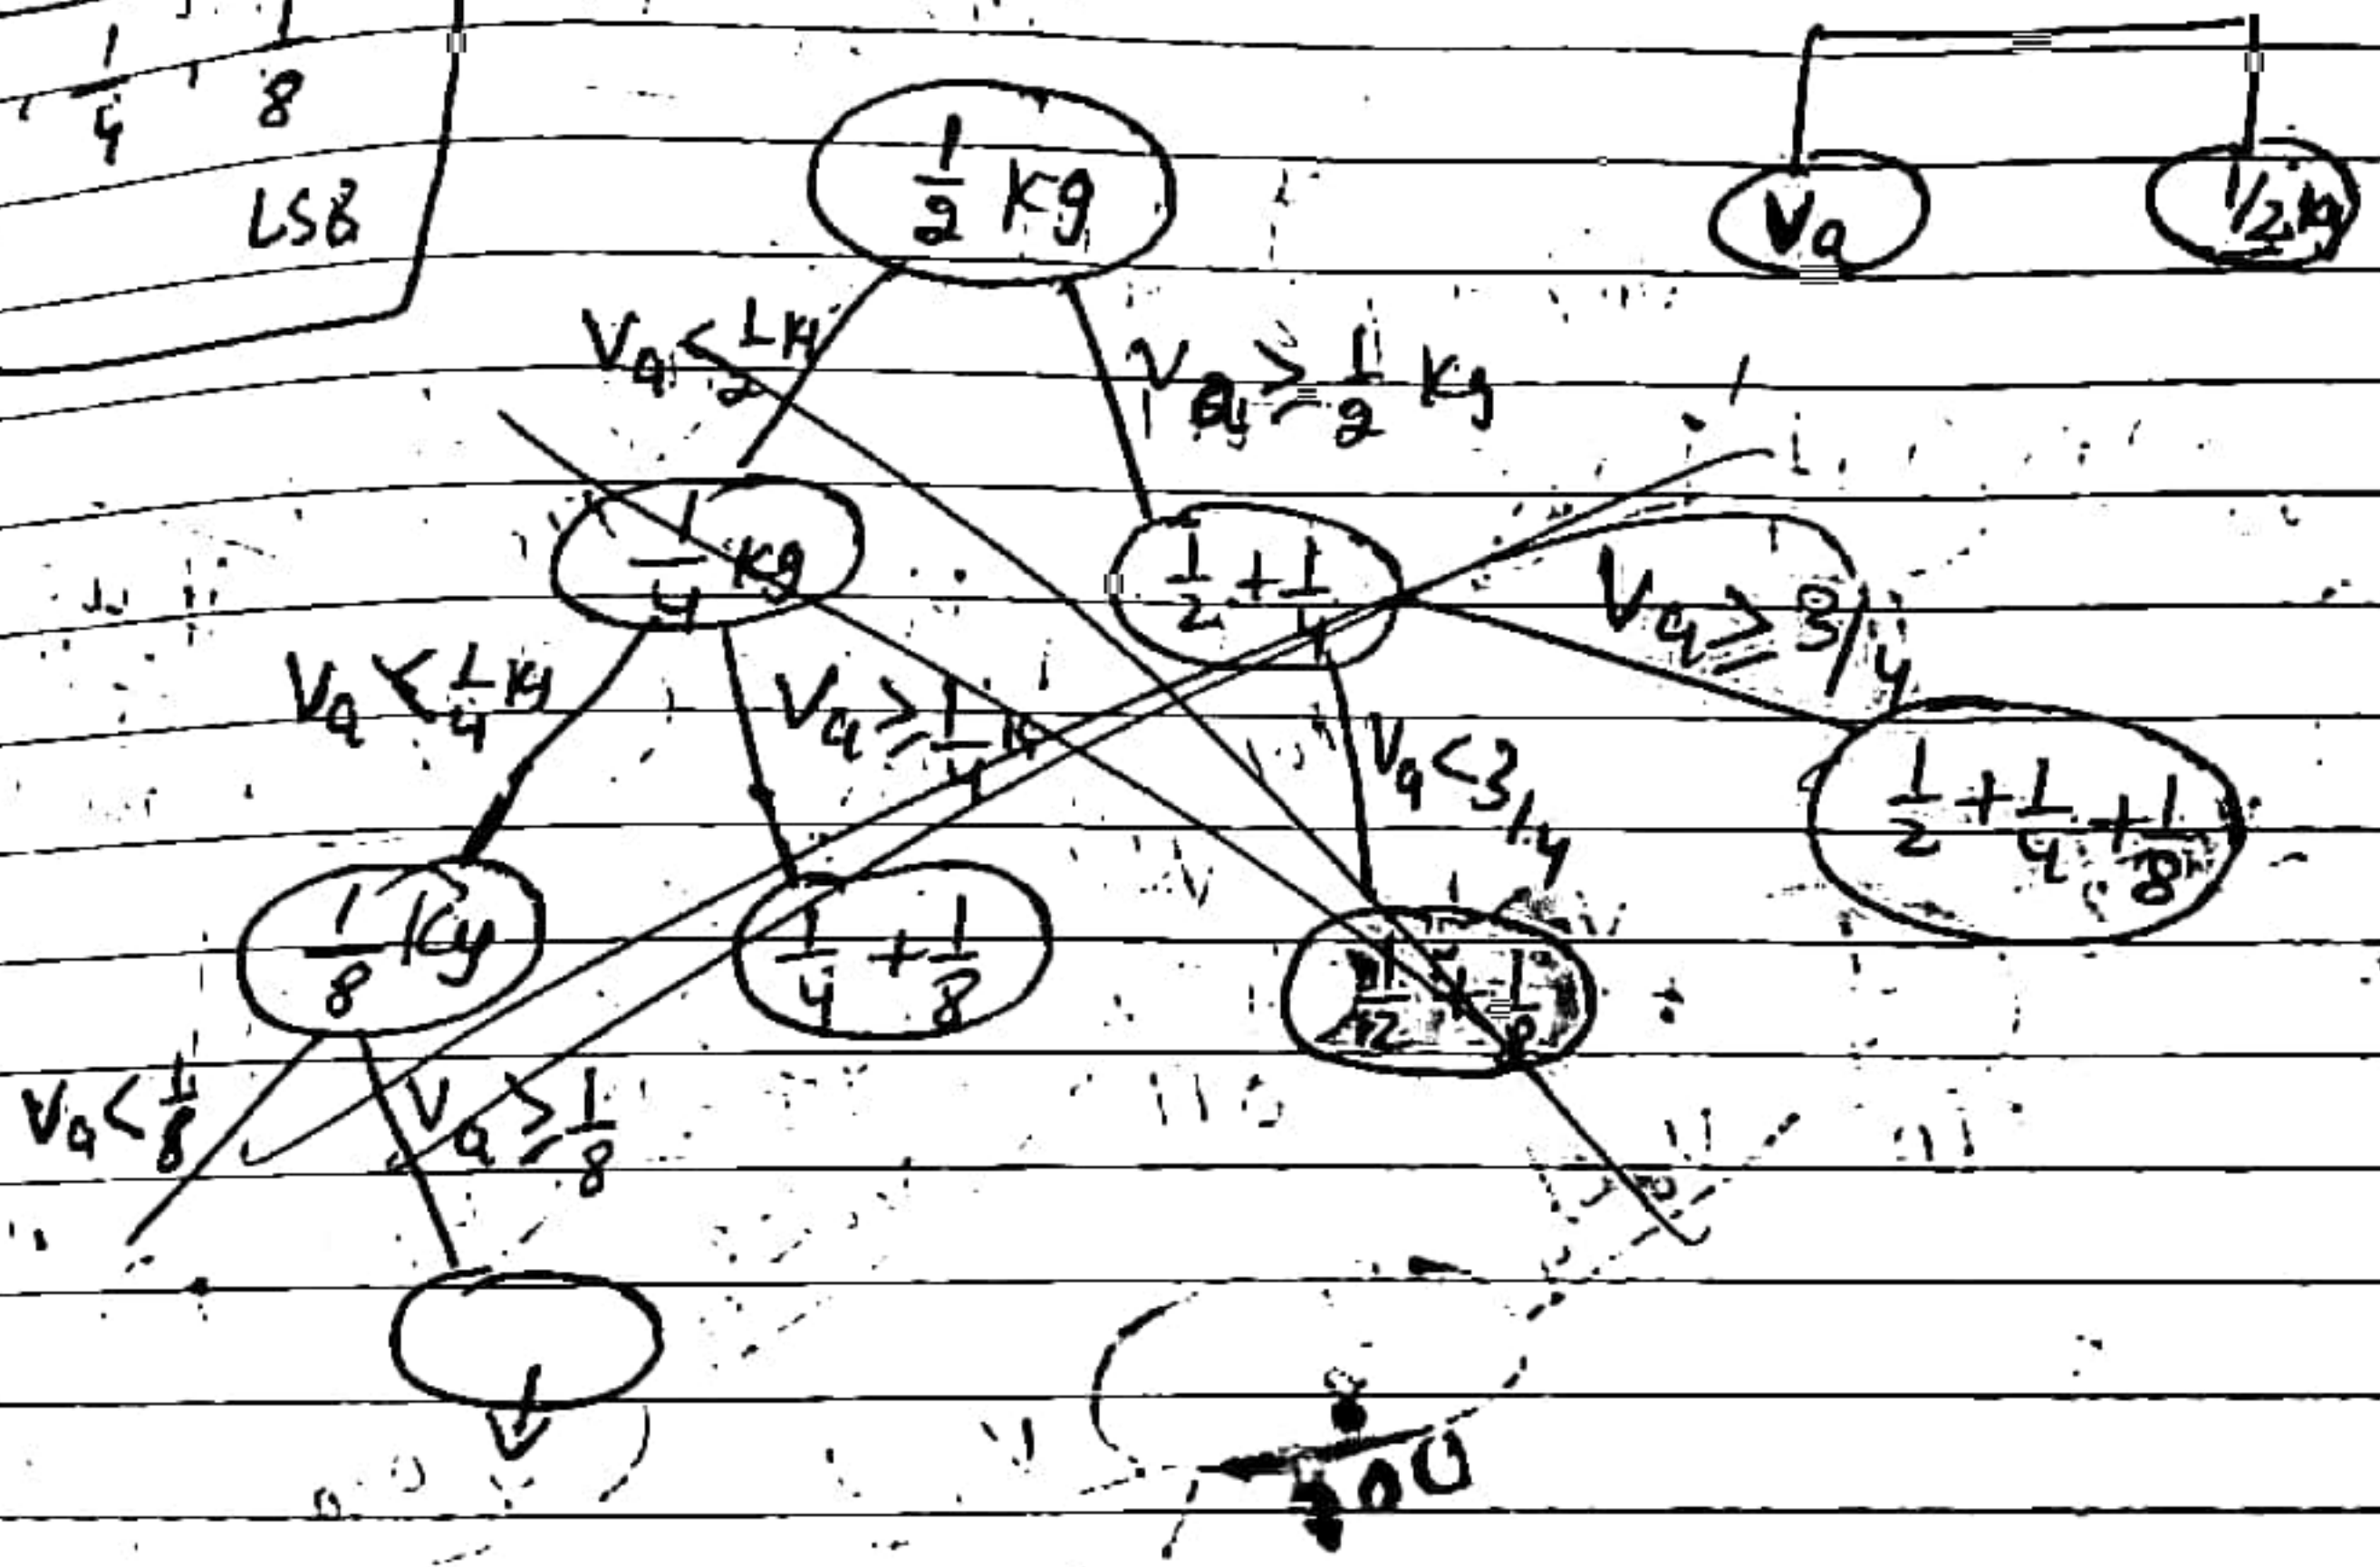 1/4 , 1/8
LSB
1/2 kg
Va
1/2 kg
Va < 1/2 kg
Va ≥ 1/2 kg
1/4 kg
1/2 + 1/4
Va ≥ 3/4
Va < 1/4 kg
Va ≥ 1/4 kg
Va < 3/4
1/2 + 1/4 + 1/8
1/8 kg
1/4 + 1/8
1/2 + 1/8
Va < 1/8
Va ≥ 1/8